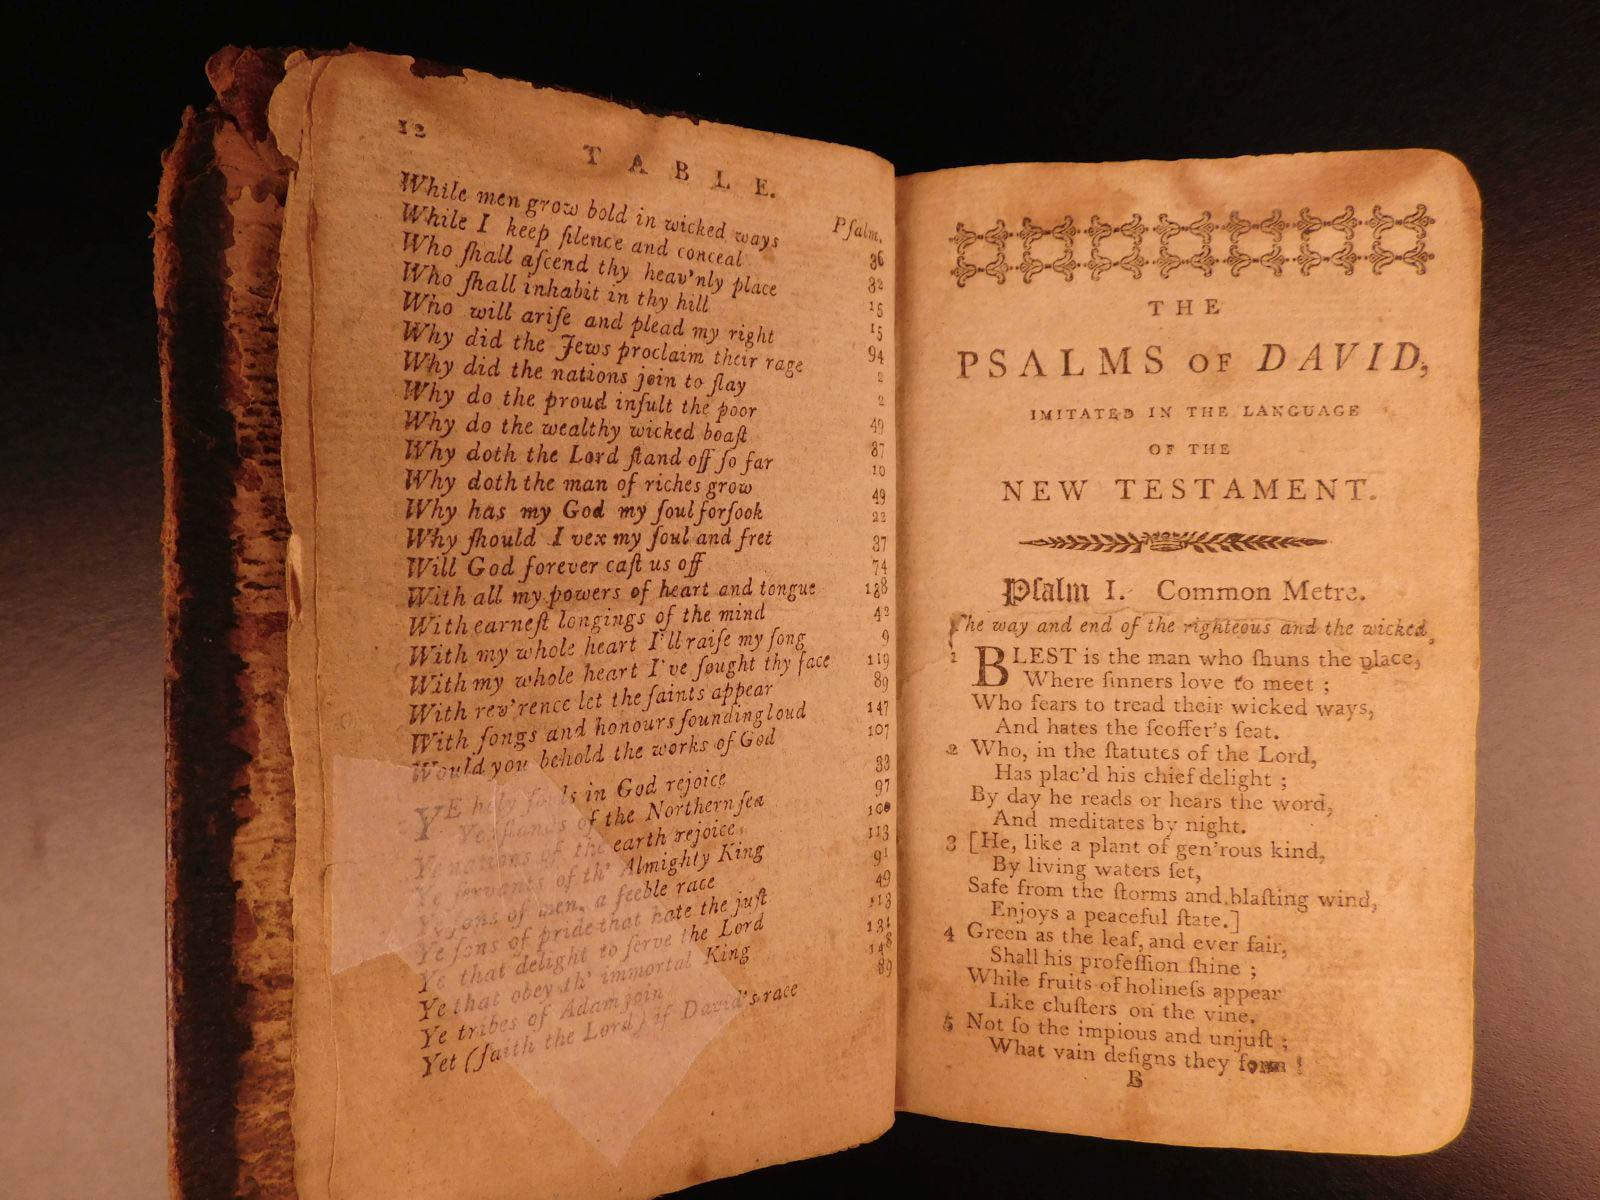 12
TABLE.
Psalm.
While men grow bold in wicked ways 36
While I keep ſilence and conceal 32
Who ſhall aſcend thy heav'nly place 15
Who ſhall inhabit in thy hill 15
Who will ariſe and plead my right 94
Why did the Jews proclaim their rage 2
Why did the nations join to ſlay 2
Why do the proud inſult the poor 49
Why do the wealthy wicked boaſt 37
Why doth the Lord ſtand off ſo far 10
Why doth the man of riches grow 49
Why has my God my ſoul forſook 22
Why ſhould I vex my ſoul and fret 37
Will God forever caſt us off 74
With all my powers of heart and tongue 138
With earneſt longings of the mind 42
With my whole heart I'll raiſe my ſong 9
With my whole heart I've ſought thy face 119
With rev'rence let the ſaints appear 89
With ſongs and honours ſounding loud 147
Would you behold the works of God 107
YE holy ſouls in God rejoice 33
Ye iſlands of the Northern ſea 97
Ye nations of the earth rejoice 100
Ye ſervants of th' Almighty King 113
Ye ſons of men, a feeble race 91
Ye ſons of pride that hate the juſt 49
Ye that delight to ſerve the Lord 113
Ye that obey th' immortal King 134
Ye tribes of Adam join 148
Yet (ſaith the Lord) if David's race 89
THE
PSALMS OF DAVID,
IMITATED IN THE LANGUAGE
OF THE
NEW TESTAMENT.
Pſalm I. Common Metre.
The way and end of the righteous and the wicked.
1 BLEST is the man who ſhuns the place,
Where ſinners love to meet ;
Who fears to tread their wicked ways,
And hates the ſcoffer's ſeat.
2 Who, in the ſtatutes of the Lord,
Has plac'd his chief delight ;
By day he reads or hears the word,
And meditates by night.
3 [He, like a plant of gen'rous kind,
By living waters ſet,
Safe from the ſtorms and blaſting wind,
Enjoys a peaceful ſtate.]
4 Green as the leaf, and ever fair,
Shall his profeſſion ſhine ;
While fruits of holineſs appear
Like cluſters on the vine.
5 Not ſo the impious and unjuſt ;
What vain deſigns they form !
B